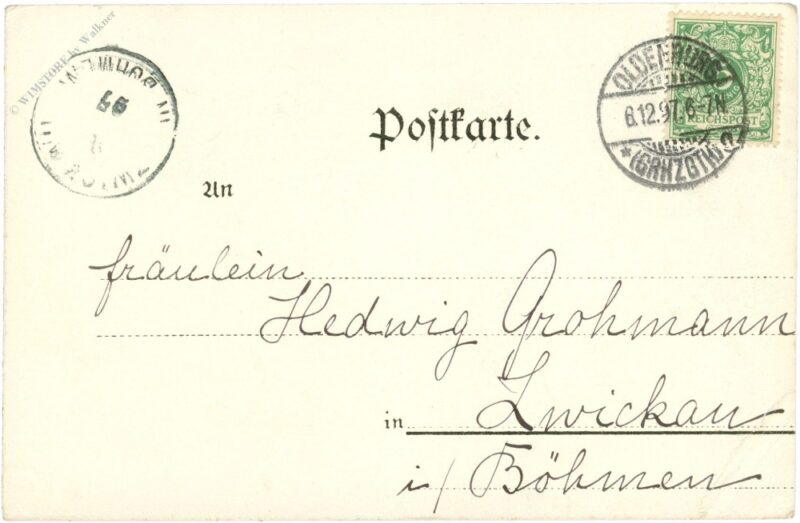 © WIMSTORE by Walkner
OLDENBURG
6.12.97.6-7N
*(GRHZGTH)
REICHSPOST
Postkarte.
An
fräulein
Hedwig Grohmann
in Zwickau
i/ Böhmen